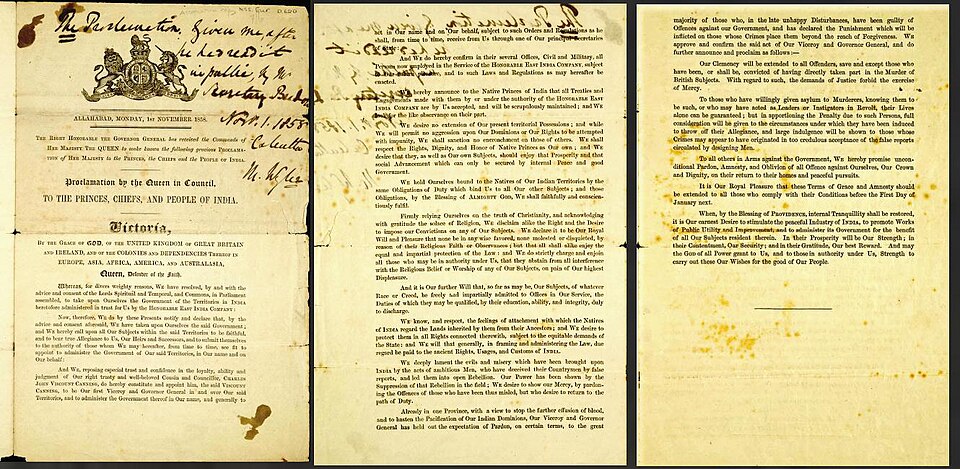 The Proclamation, Given me after
he had read it
in public, by Mr
Secretary
Nov. 1. 1858
ALLAHABAD, MONDAY, 1ST NOVEMBER 1858.
THE RIGHT HONORABLE THE GOVERNOR GENERAL has received the Commands of
HER MAJESTY THE QUEEN to make known the following gracious PROCLAMA-
TION of HER MAJESTY to the PRINCES, the CHIEFS and the PEOPLE OF INDIA.
Proclamation by the Queen in Council,
TO THE PRINCES, CHIEFS, AND PEOPLE OF INDIA.
Victoria,
BY THE GRACE OF GOD, OF THE UNITED KINGDOM OF GREAT BRITAIN
AND IRELAND, AND OF THE COLONIES AND DEPENDENCIES THEREOF IN
EUROPE, ASIA, AFRICA, AMERICA, AND AUSTRALASIA,
Queen, Defender of the Faith.
WHEREAS, for divers weighty reasons, We have resolved, by and with the
advice and consent of the Lords Spiritual and Temporal, and Commons, in Parliament
assembled, to take upon Ourselves the Government of the Territories in INDIA
heretofore administered in trust for Us by the HONORABLE EAST INDIA COMPANY:
Now, therefore, We do by these Presents notify and declare that, by the
advice and consent aforesaid, We have taken upon Ourselves the said Government;
and We hereby call upon all Our Subjects within the said Territories to be faithful,
and to bear true Allegiance to Us, Our Heirs and Successors, and to submit themselves
to the authority of those whom We may hereafter, from time to time, see fit to
appoint to administer the Government of Our said Territories, in Our name and on
Our behalf:
And WE, reposing especial trust and confidence in the loyalty, ability and
judgment of Our right trusty and well-beloved Cousin and Councillor, CHARLES
JOHN VISCOUNT CANNING, do hereby constitute and appoint him, the said VISCOUNT
CANNING, to be Our first Viceroy and Governor General in and over Our said
Territories, and to administer the Government thereof in Our name, and generally to
act in Our name and on Our behalf, subject to such Orders and Regulations as he
shall, from time to time, receive from Us through one of Our principal Secretaries
And WE do hereby confirm in their several Offices, Civil and Military, all
Persons now employed in the Service of the HONORABLE EAST INDIA COMPANY, subject
pleasure, and to such Laws and Regulations as may hereafter be
enacted.
hereby announce to the Native Princes of India that all Treaties and
Engagements made with them by or under the authority of the HONORABLE EAST
INDIA COMPANY are by Us accepted, and will be scrupulously maintained; and We
for the like observance on their part.
We desire no extension of Our present territorial Possessions; and while
We will permit no aggression upon Our Dominions or Our Rights to be attempted
with impunity, We shall sanction no encroachment on those of others. We shall
respect the Rights, Dignity, and Honor of Native Princes as Our own; and We
desire that they, as well as Our own Subjects, should enjoy that Prosperity and that
social Advancement which can only be secured by internal Peace and good
Government.
We hold Ourselves bound to the Natives of Our Indian Territories by the
same Obligations of Duty which bind Us to all Our other Subjects; and those
Obligations, by the Blessing of ALMIGHTY GOD, We shall faithfully and conscien-
ciously fulfil.
Firmly relying Ourselves on the truth of Christianity, and acknowledging
with gratitude the solace of Religion, We disclaim alike the Right and the Desire
to impose our Convictions on any of Our Subjects. We declare it to be Our Royal
Will and Pleasure that none be in any wise favored, none molested or disquieted, by
reason of their Religious Faith or Observances; but that all shall alike enjoy the
equal and impartial protection of the Law: and We do strictly charge and enjoin
all those who may be in authority under Us, that they abstain from all interference
with the Religious Belief or Worship of any of Our Subjects, on pain of Our highest
Displeasure.
And it is Our further Will that, so far as may be, Our Subjects, of whatever
Race or Creed, be freely and impartially admitted to Offices in Our Service, the
Duties of which they may be qualified, by their education, ability, and integrity, duly
to discharge.
We know, and respect, the feelings of attachment with which the Natives
of INDIA regard the Lands inherited by them from their Ancestors; and We desire to
protect them in all Rights connected therewith, subject to the equitable demands of
the State: and We will that generally, in framing and administering the Law, due
regard be paid to the ancient Rights, Usages, and Customs of INDIA.
We deeply lament the evils and misery which have been brought upon
INDIA by the acts of ambitious Men, who have deceived their Countrymen by false
reports, and led them into open Rebellion. Our Power has been shown by the
Suppression of that Rebellion in the field; We desire to show our Mercy, by pardon-
ing the Offences of those who have been thus misled, but who desire to return to the
path of Duty.
Already in one Province, with a view to stop the further effusion of blood,
and to hasten the Pacification of Our Indian Dominions, Our Viceroy and Governor
General has held out the expectation of Pardon, on certain terms, to the great
majority of those who, in the late unhappy Disturbances, have been guilty of
Offences against our Government, and has declared the Punishment which will be
inflicted on those whose Crimes place them beyond the reach of Forgiveness. We
approve and confirm the said act of Our Viceroy and Governor General, and do
further announce and proclaim as follows:—
Our Clemency will be extended to all Offenders, save and except those who
have been, or shall be, convicted of having directly taken part in the Murder of
British Subjects. With regard to such, the demands of Justice forbid the exercise
of Mercy.
To those who have willingly given asylum to Murderers, knowing them to
be such, or who may have acted as Leaders or Instigators in Revolt, their Lives
alone can be guaranteed; but in apportioning the Penalty due to such Persons, full
consideration will be given to the circumstances under which they have been induced
to throw off their Allegiance, and large indulgence will be shown to those whose
Crimes may appear to have originated in too credulous acceptance of the false reports
circulated by designing Men.
To all others in Arms against the Government, We hereby promise uncon-
ditional Pardon, Amnesty, and Oblivion of all Offence against Ourselves, Our Crown
and Dignity, on their return to their homes and peaceful pursuits.
It is Our Royal Pleasure that these Terms of Grace and Amnesty should
be extended to all those who comply with their Conditions before the First Day of
January next.
When, by the Blessing of PROVIDENCE, internal Tranquillity shall be restored,
it is Our earnest Desire to stimulate the peaceful Industry of INDIA, to promote Works
of Public Utility and Improvement, and to administer its Government for the benefit
of all Our Subjects resident therein. In their Prosperity will be Our Strength; in
their Contentment, Our Security; and in their Gratitude, Our best Reward. And may
the GOD of all Power grant to Us, and to those in authority under Us, Strength to
carry out these Our Wishes for the good of Our People.